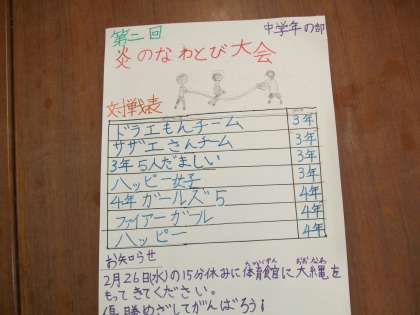 第二回
中学年の部
炎のなわとび大会
対戦表
ドラエもんチーム 3年
サザエさんチーム 3年
3年5人だましい 3年
ハッピー女子 3年
4年ガールズ5 4年
ファイアーガール 4年
ハッピー 4年
お知らせ
2月26日(水)の15分休みに体育館に大縄を
もってきてください。
優勝めざしてがんばろう!